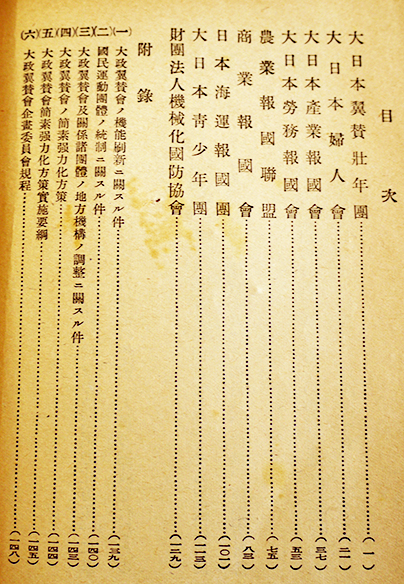 目次
大日本翼贊壯年團……(一)
大日本婦人會……(二一)
大日本產業報國會……(三七)
大日本勞務報國會……(五三)
農業報國聯盟……(七五)
商業報國會……(八三)
日本海運報國團……(一〇一)
大日本靑少年團……(一一三)
財團法人機械化國防協會……(一二九)
附錄
(一)大政翼贊會ノ機能刷新ニ關スル件……(一三九)
(二)國民運動團體ノ統制ニ關スル件……(一四〇)
(三)大政翼贊會及關係諸團體ノ地方機構ノ調整ニ關スル件……(一四三)
(四)大政翼贊會ノ簡素强力化方策……(一四四)
(五)大政翼贊會簡素强力化方策實施要綱……(一四五)
(六)大政翼贊會企畫委員會規程……(一四八)